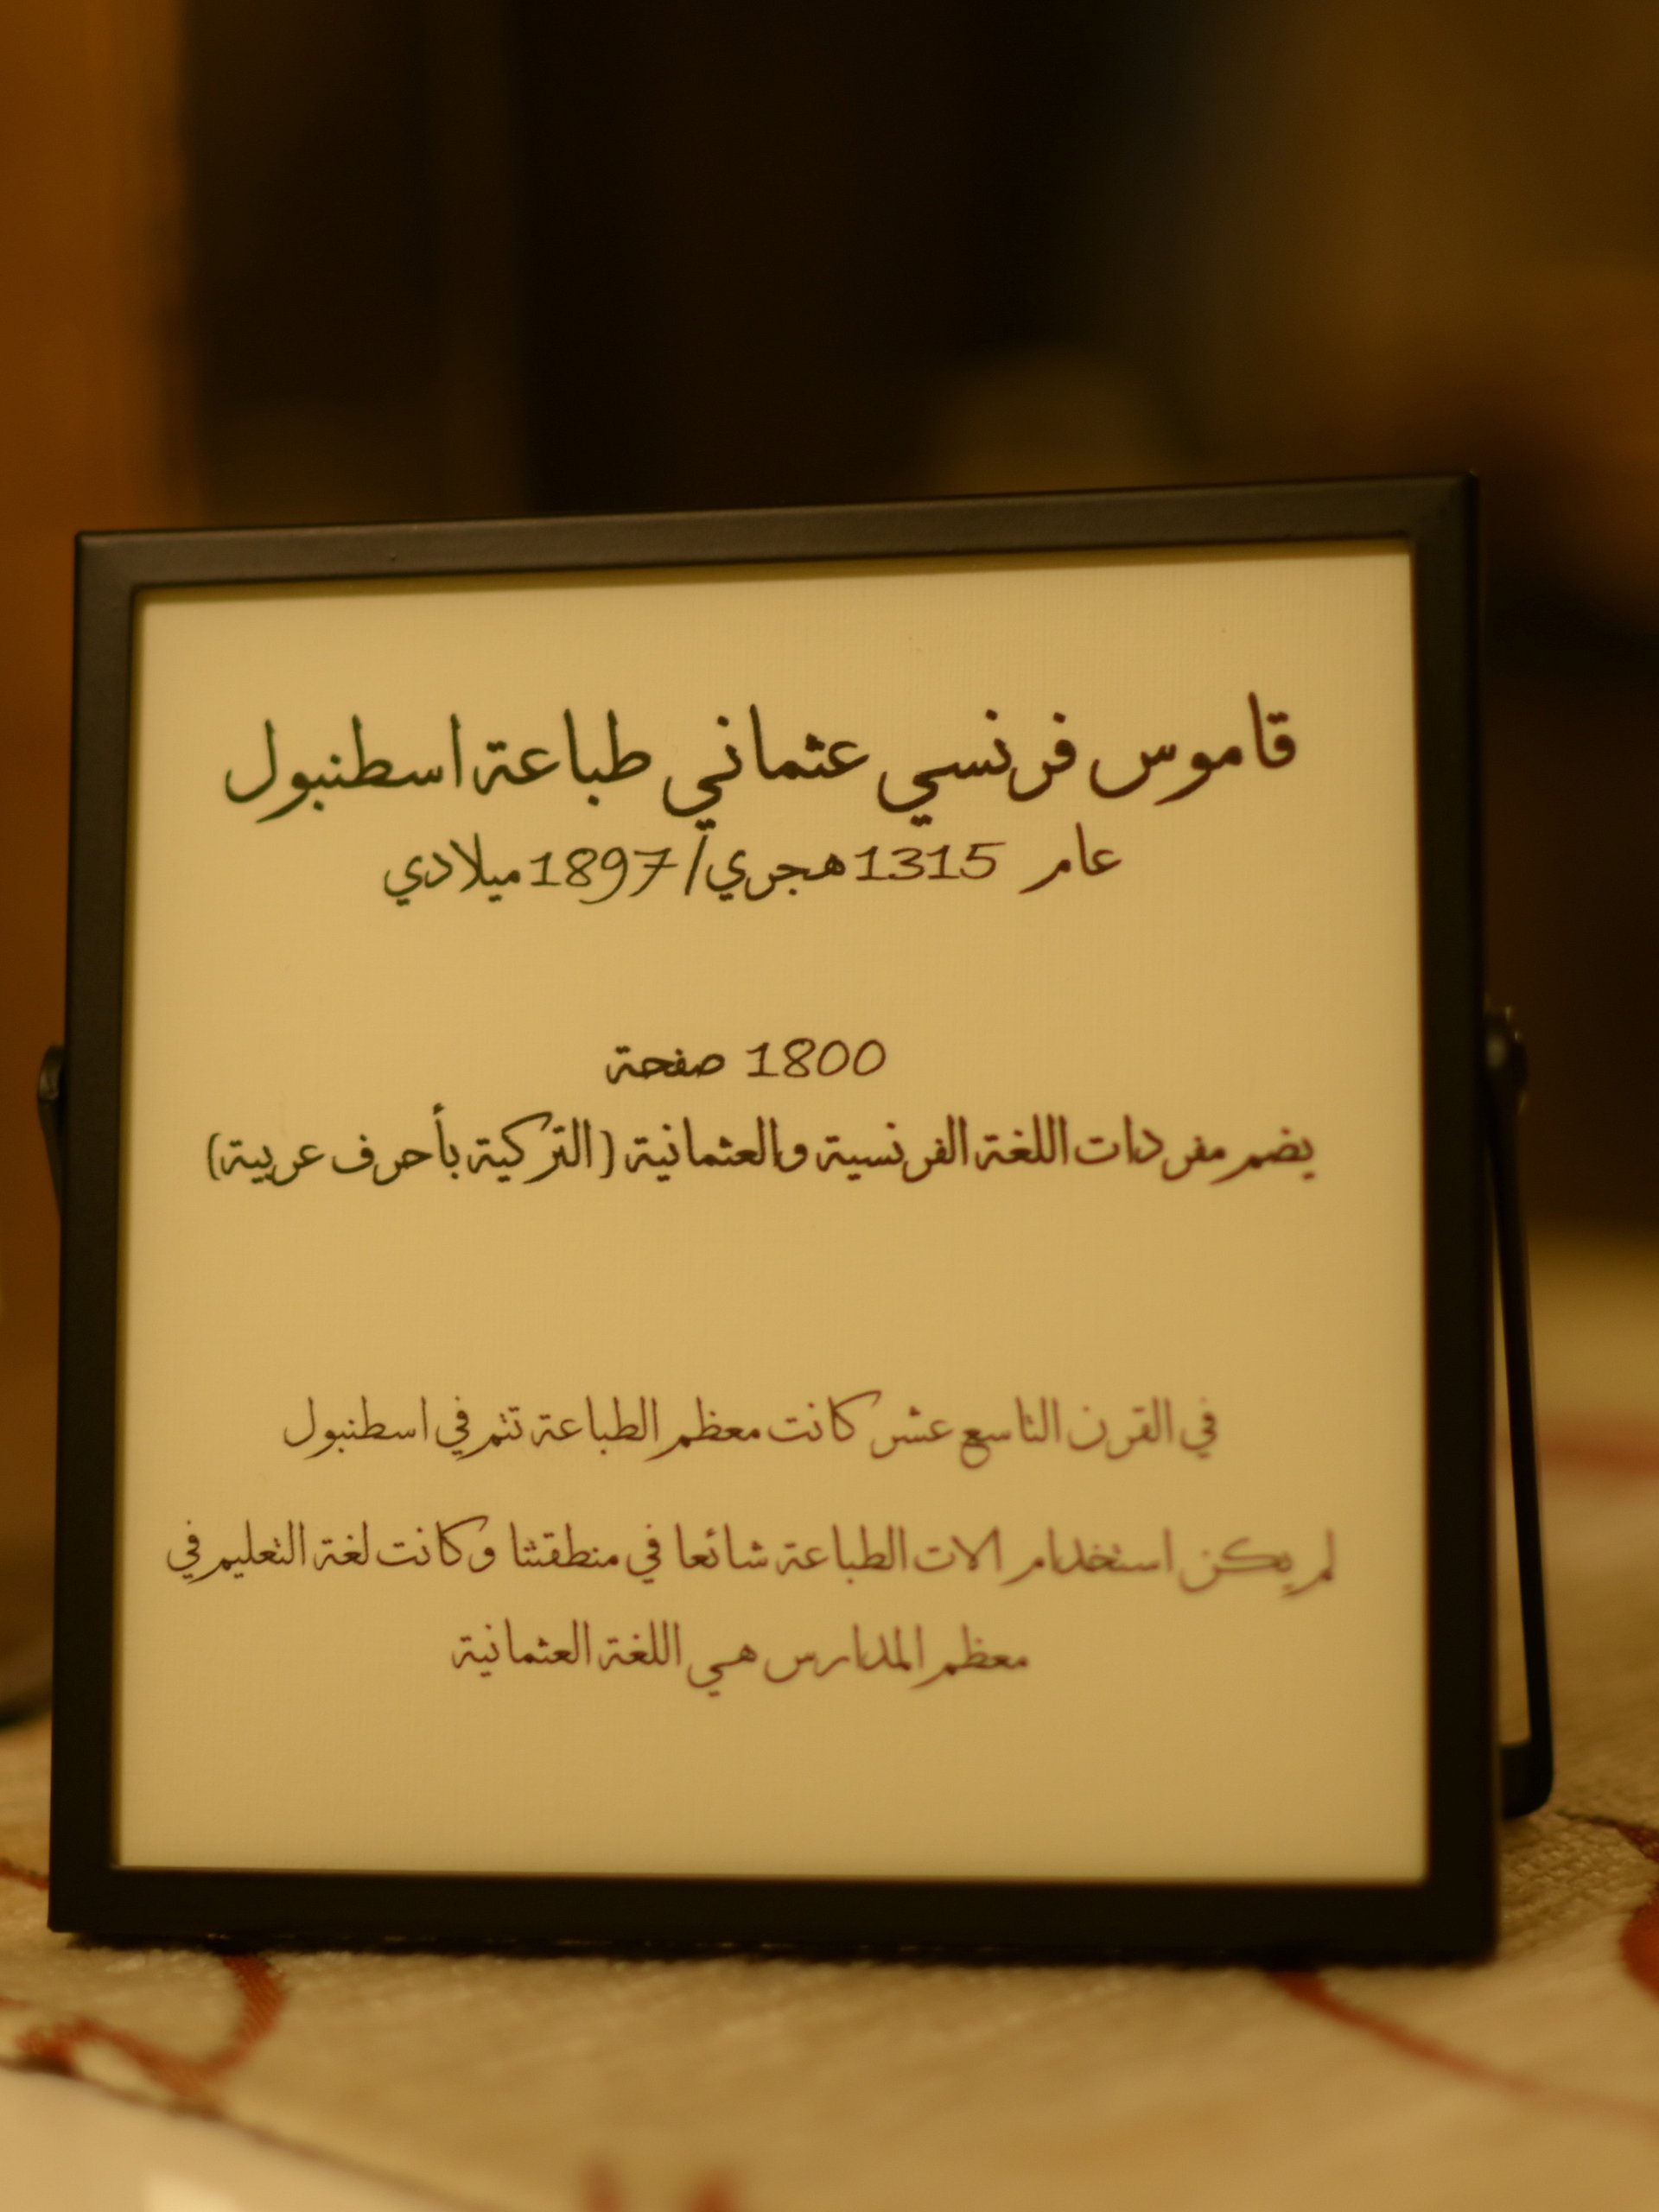 قاموس فرنسي عثماني طباعة اسطنبول
عام 1315 هجري/1897 ميلادي
1800 صفحة
يضم مفردات اللغة الفرنسية والعثمانية (التركية بأحرف عربية)
في القرن التاسع عشر كانت معظم الطباعة تتم في اسطنبول
لم يكن استخدام الات الطباعة شائعا في منطقتنا وكانت لغة التعليم في
معظم المدارس هي اللغة العثمانية